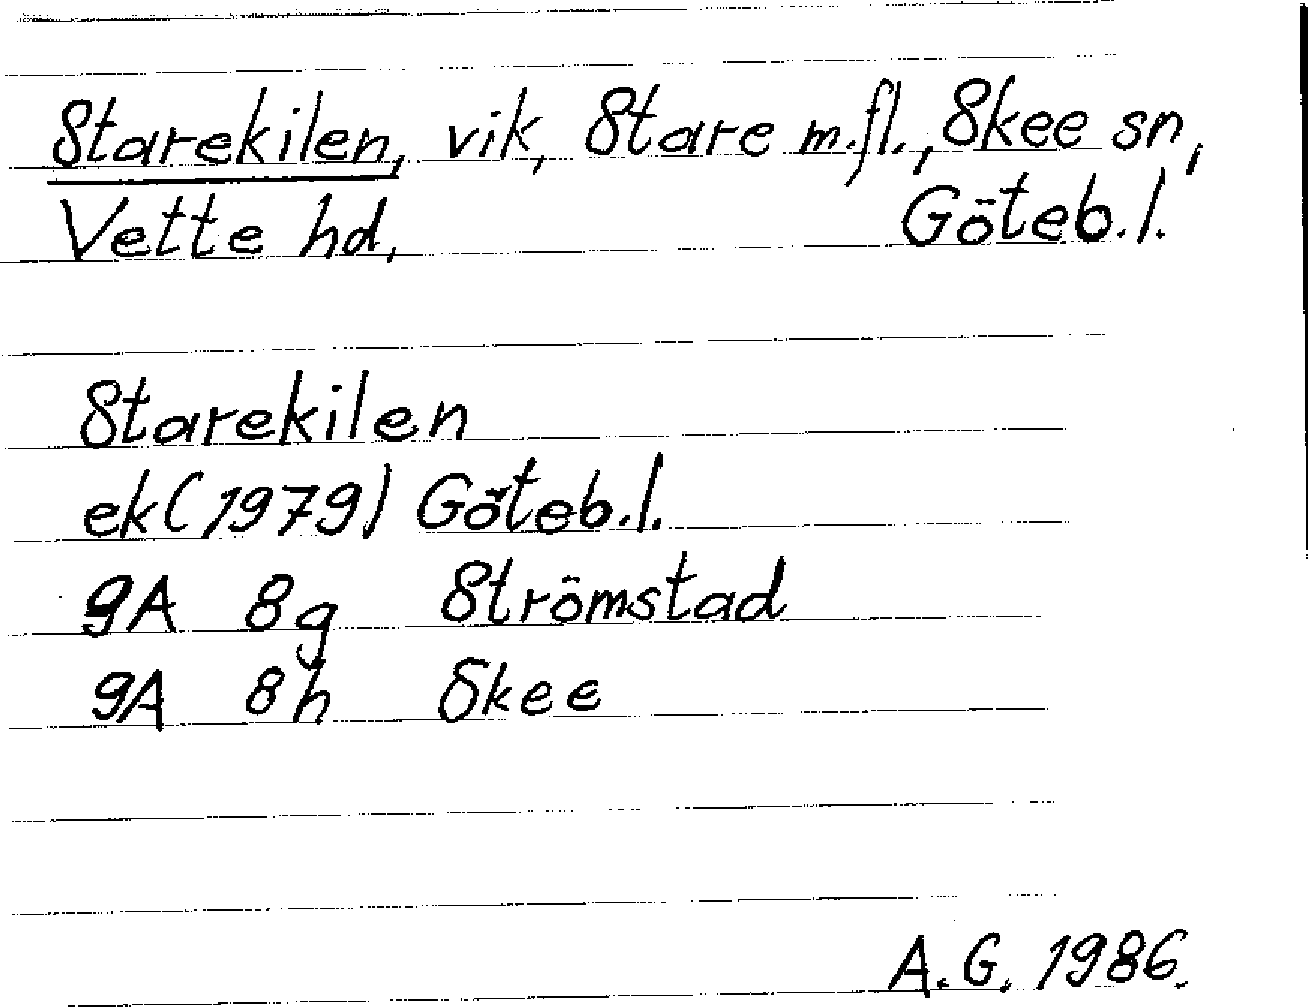 Starekilen, vik, Stare m.fl., Skee sn,
Vette hd, Göteb.l.
Starekilen
ek(1979) Göteb.l.
9A 8g Strömstad
9A 8h Skee
A.G. 1986.